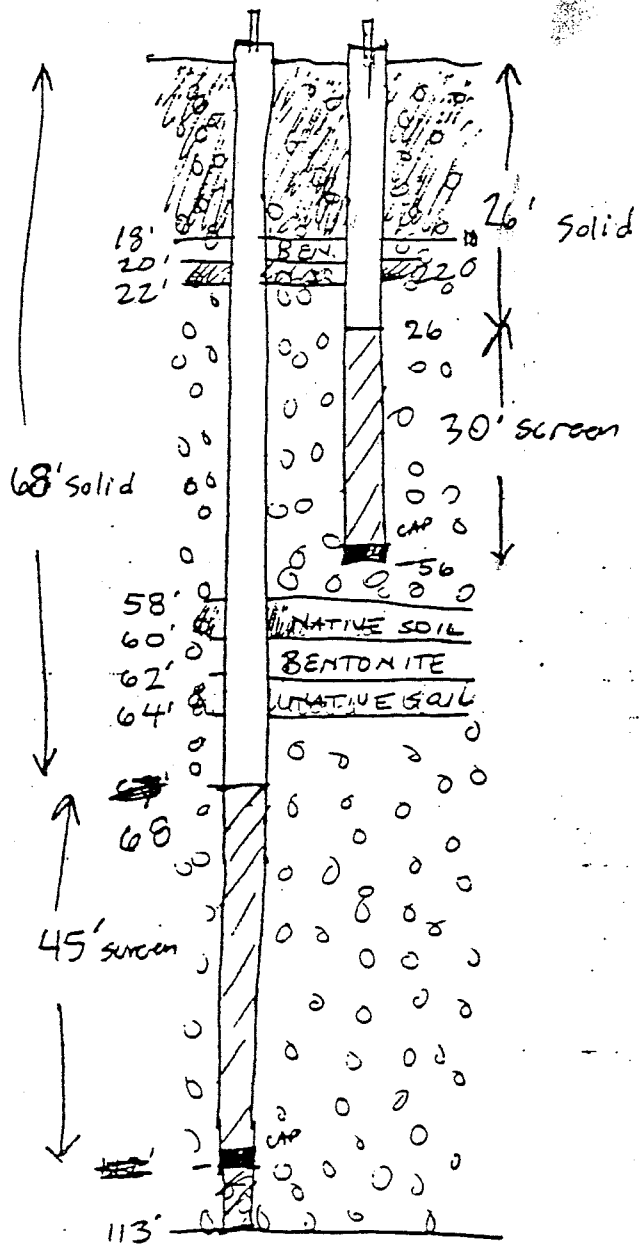 18'
BEN.
20'
20
22'
26' Solid
26
30' screen
68' Solid
CAP
56
58'
NATIVE SOIL
60'
BENTONITE
62'
NATIVE SOIL
64'
68
45' screen
CAP
113'